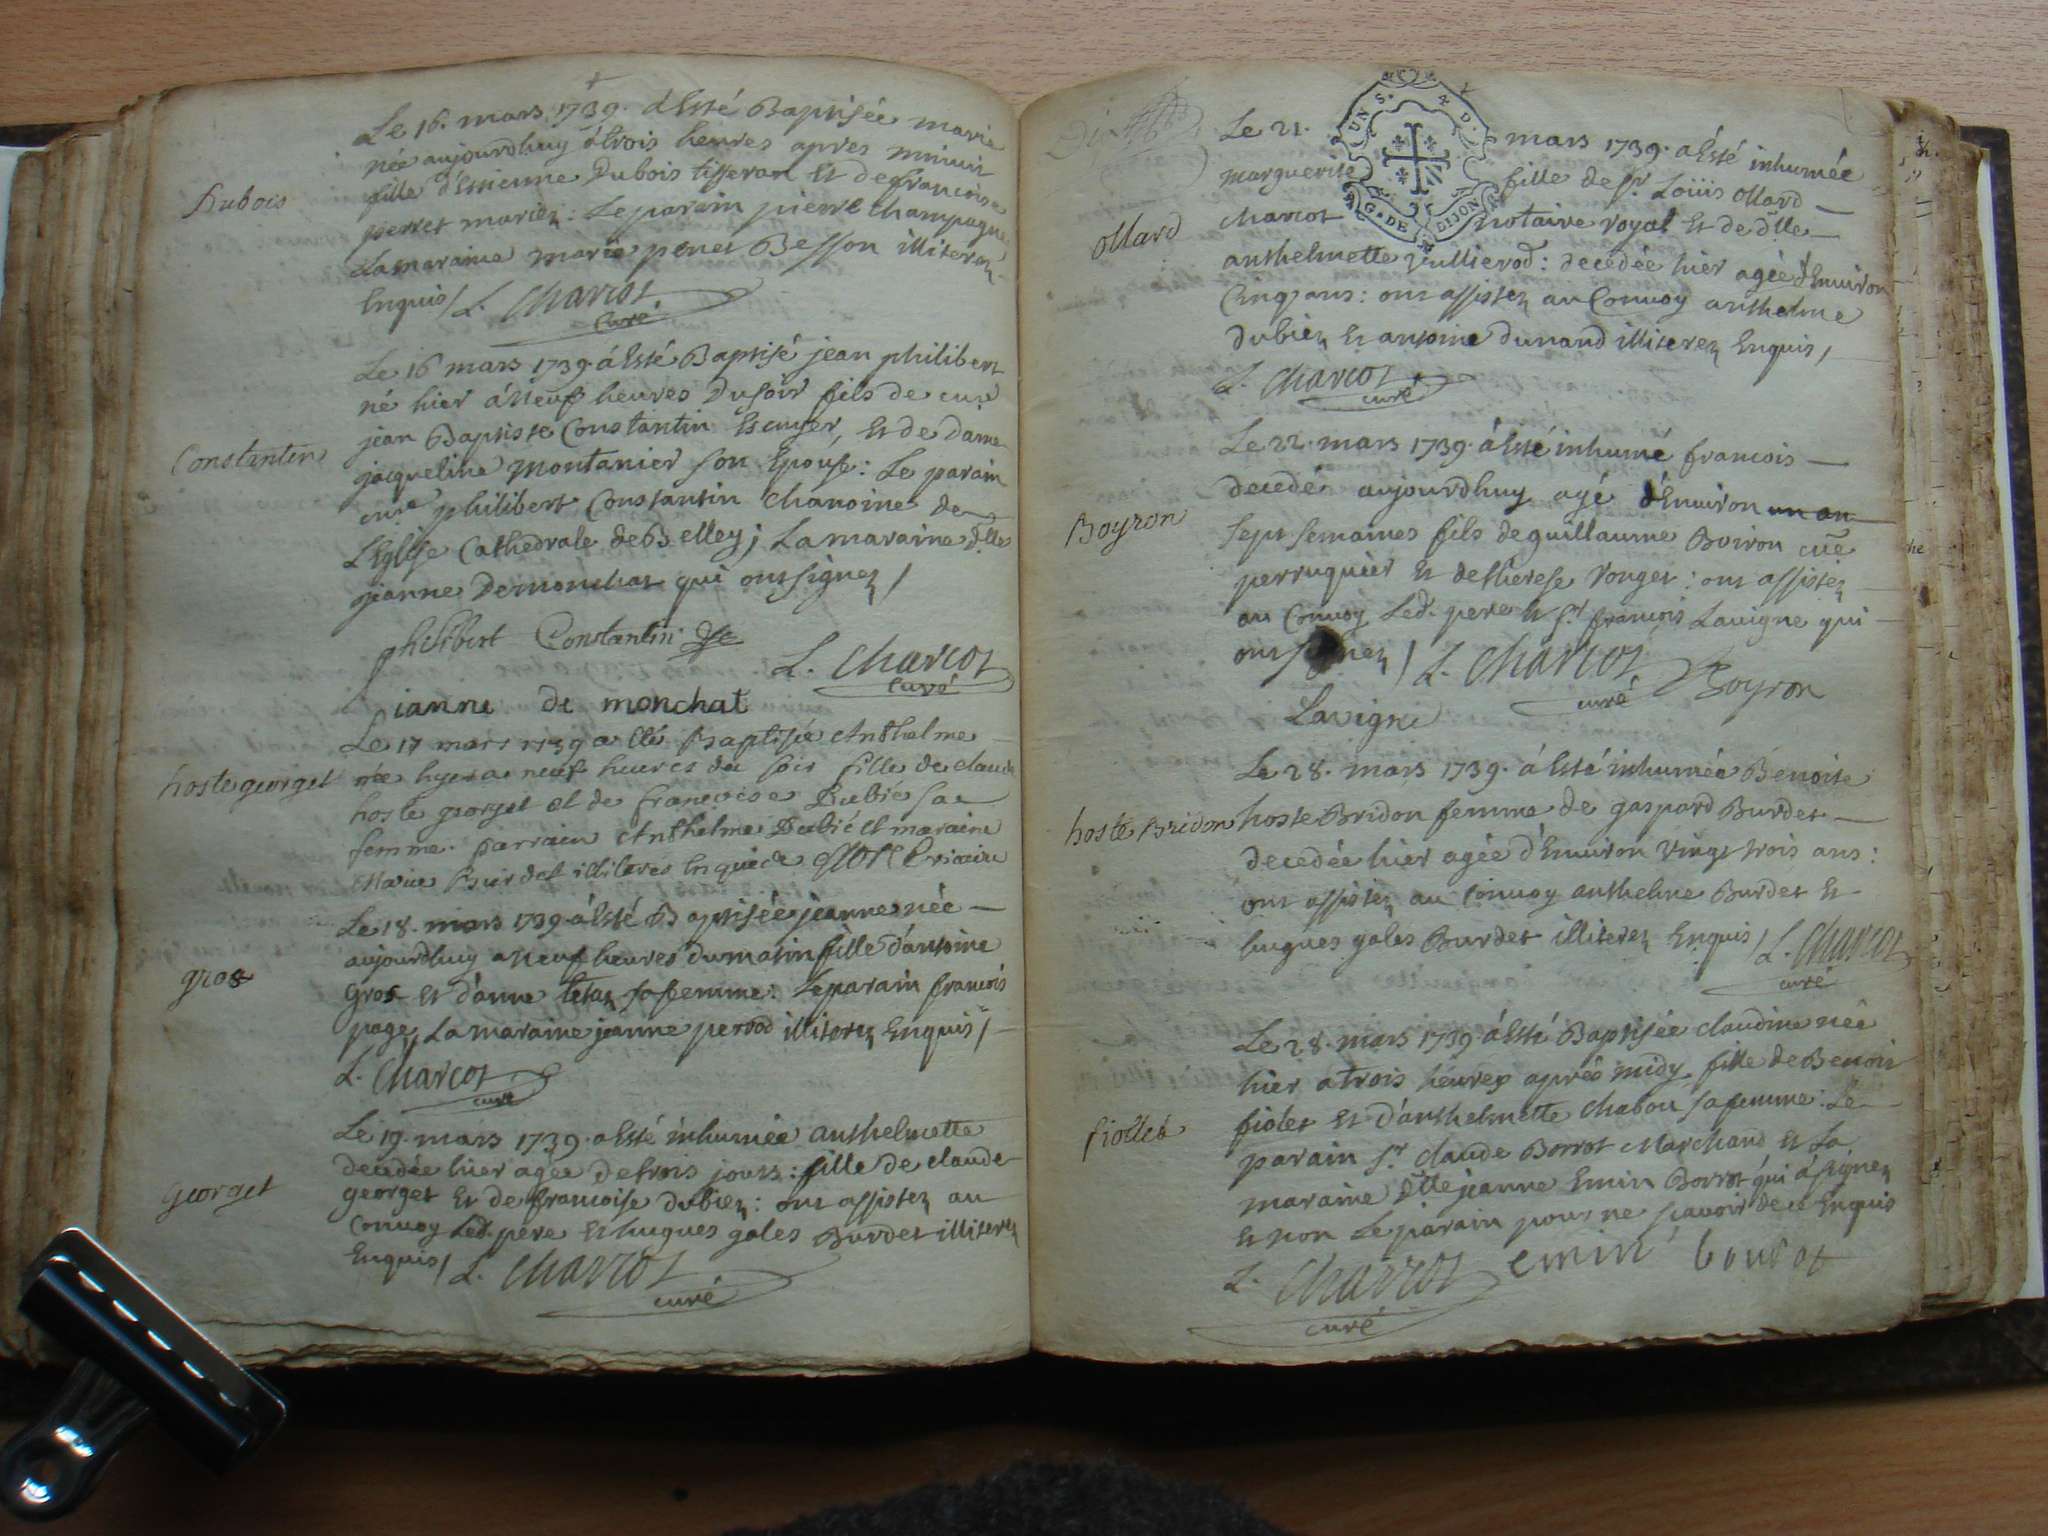 Dubois
Le 16. mars 1739. á Esté Baptisée marie
née aujourdhuy á trois heures apres minuit
fille d'Estienne Dubois tisseran Et de francoise
perret mariez: Le parain pierre Champagne
La maraine marie penet Besson illiterez
Enquis / L. Charcot
curé
Constantin
Le 16 mars 1739 á Esté Baptisé jean philibert
né hier á Neuf heures Du soir fils de
jean Baptiste Constantin Escuyer, Et de Dame
jacqueline Montanier son Epouse: Le parain
philibert Constantin Chanoine de
L'Eglise Cathedrale de Belley; La maraine dlle
jeanne Demonchat qui ont signez /
philibert Constantin
L. Charcot
curé
ianne de monchat
hoste georget
Le 17 mars 1739 a été Baptisée Anthelme
née hyer a neuf heures du soir fille de claude
hoste georget et de francoise Dubie sa
femme. parrain Anthelme Dubié et maraine
Marie Burdet illiteres Enquis vicaire
gros
Le 18. mars 1739 á Esté Baptisée jeanne née
aujourdhuy a Neuf heures du matin fille d'antoine
Gros Et d'anne sa femme: Le parain francois
page, La maraine jeanne perrod illiterez Enquis /
L. Charcot
curé
georget
Le 19. mars 1739. a Esté inhumée anthelmette
decedée hier agée de trois jours: fille de claude
georget Et de francoise dubiez: ont assistez au
Convoy Led. pere Et hugues gales Burdet illiterez
Enquis / L. Charcot
curé
UN S. 4 D.
G. DE DIJON
ollard
Le 21. mars 1739. á Esté inhumée
marguerite fille de sr Loüis ollard
charcot notaire royal Et de dlle
anthelmette Vullierod: decedée hier agée d'Environ
Cinq ans: ont assistez au Convoy anthelme
dubiez Et antoine dunand illiterez Enquis /
L. Charcot
curé
Boyron
Le 22. mars 1739. á Esté inhumé francois
decedé aujourdhuy agé d'Environ un an
sept semaines fils de guillaume Boiron
perruquier Et de therese ronget: ont assistez
au Convoy Led. pere Et sr. francois Lavigne qui
ont signez / L. Charcot
curé
Boyron
Lavigne
hoste Bridon
Le 28. mars 1739. á Esté inhumée Benoite
hoste Bridon femme de gaspard Burdet
decedée hier agée d'Environ vingt trois ans:
ont assistez au Convoy anthelme Burdet Et
hugues gales Burdet illiterez Enquis / L. Charcot
curé
fiollet
Le 28. mars 1739. á Esté Baptisée claudine née
hier a trois heures aprés midy fille de Benoit
fiolet Et d'anthelmette chabou sa femme: Le
parain sr. claude Borrot Marchand Et La
maraine dlle jeanne Emin Borrot qui á signez
Et non Le parain pour ne sçavoir de ce Enquis
L. Charcot emin bourot
curé